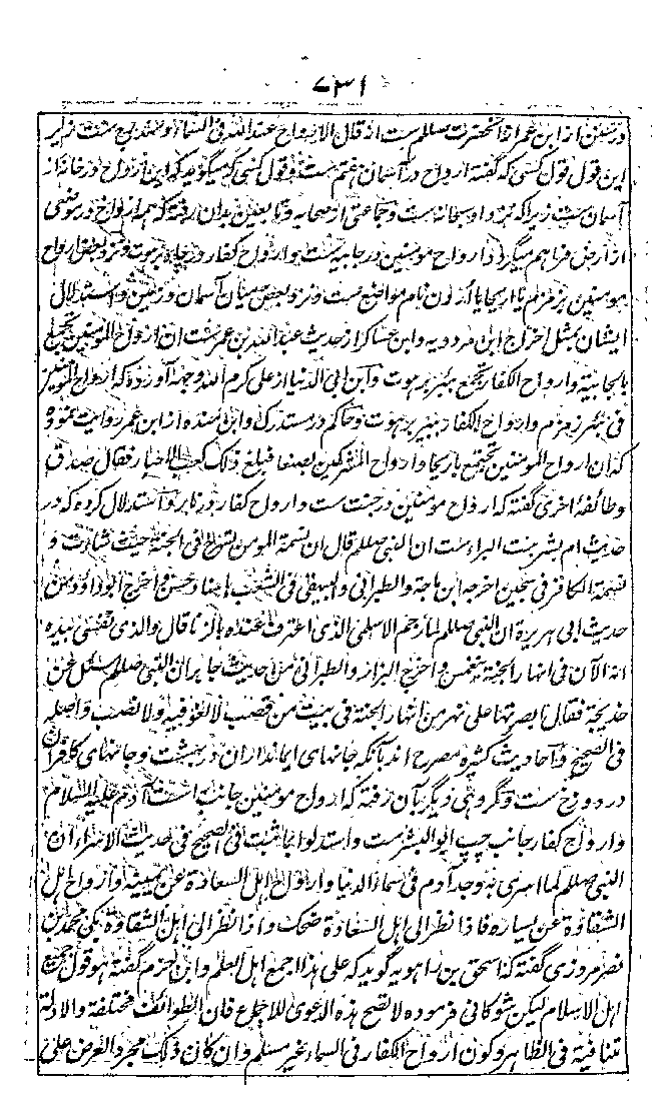 ۷۳۱
ابن عمر از آنحضرت صلعم ست انه قال الارواح عند الله فی السماء
این قول قول کسی که گفته ارواح در آسمان هفتم ست و قول کسی که میگوید که این ارواح در خانه از
آسمان ست زیراکه و جماعتی از صحابه و تابعین بدان رفته که ارواح در موضعی
از ارض فراهم میگردد ارواح مومنین در جابیه ست و ارواح کفار در چاه برهوت و نزد بعض ارواح
مومنین بزمزم یا اریحا نام مواضع ست و نزد بعض میان آسمان و زمین و استدلال
ایشان بمثل اخراج ابن مردویه و ابن عساکر از حدیث عبد الله بن عمر ست ان ارواح المومنین تجتمع
بالجابیة و ارواح الکفار تجتمع ببئر برهوت و ابن ابی الدنیا از علی کرم الله وجهه آورده که ارواح المومنین
فی بئر زمزم و ارواح الکفار ببئر برهوت و حاکم در مستدرک و ابن منده از ابن عمر روایت نموده
که ان ارواح المومنین تجتمع باریحا و ارواح المشرکین بصنعا فبلغ ذلک کعب الاحبار فقال صدق
و طائفهٔ اخری گفته که ارواح مومنین در جنت ست و ارواح کفار در نار و استدلال کرده که در
حدیث ام بشر بنت البراء ست ان النبی صلعم قال ان نسمة المومن تسرح فی الجنة حیث شاءت و
نسمة الکافر فی سجین اخرجه ابن ماجة و الطبرانی و البیهقی فی الشعب باسناد حسن و اخرج ابو داؤد من
حدیث ابی هریرة ان النبی صلعم لما رجم الاسلمی الذی اعترف عنده بالزنا قال والذی نفسی بیده
انه الآن فی انهار الجنة ینغمس و اخرج البزار و الطبرانی من حدیث جابر ان النبی صلعم سئل عن
خدیجة فقال ابصرتها علی نهر من انهار الجنة فی بیت من قصب لا لغو فیه ولا نصب و اصله
فی الصحیح و احادیث کثیره مصرح اند بآنکه جانهای ایمانداران در بهشت و جانهای کافران
در دوزخ ست و گروهی دیگر بآن رفته که ارواح مومنین جانب راست آدم علیه السلام
و ارواح کفار جانب چپ ابو البشر ست و استدلوا بما ثبت فی الصحیح فی حدیث الاسراء ان
النبی صلعم لما اسری به وجد آدم فی سماء الدنیا و ارواح اهل السعادة عن یمینه و ارواح اهل
الشقاوة عن یساره فاذا نظر الی اهل السعادة ضحک و اذا نظر الی اهل الشقاوة بکی محمد بن
نصر مروزی گفته که اسحق بن راهویه گوید که علی هذا اجمع اهل العلم و ابن حزم گفته هو قول جمیع
اهل الاسلام لیکن شوکانی فرموده لا تصح هذه الدعوی للاجماع فان الطوائف مختلفة و الادلة
متنافیة فی الظاهر و کون ارواح الکفار فی السماء غیر مسلم و ان کان ذلک مجرد العرض علی